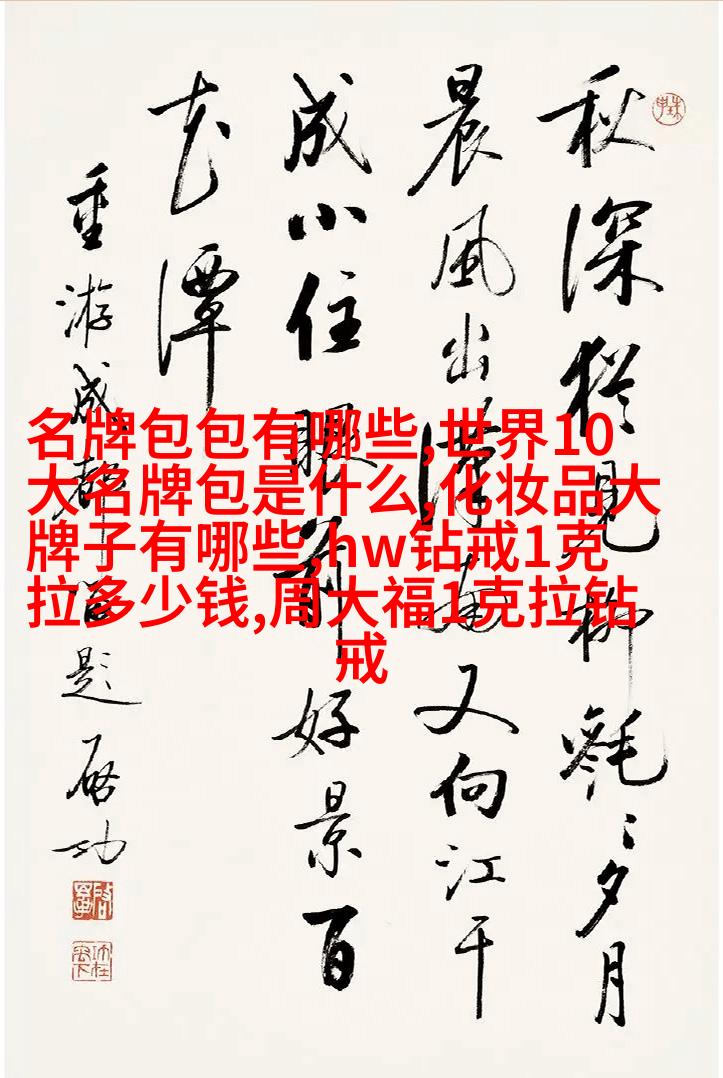 秋深猶見柳毿〻夕月
晨風出漢南又向江干
成小住眼前好景百
花潭
重游成都留題 啓功
名牌包包有哪些,世界10
大名牌包是什么,化妆品大
牌子有哪些,hw钻戒1克
拉多少钱,周大福1克拉钻
戒